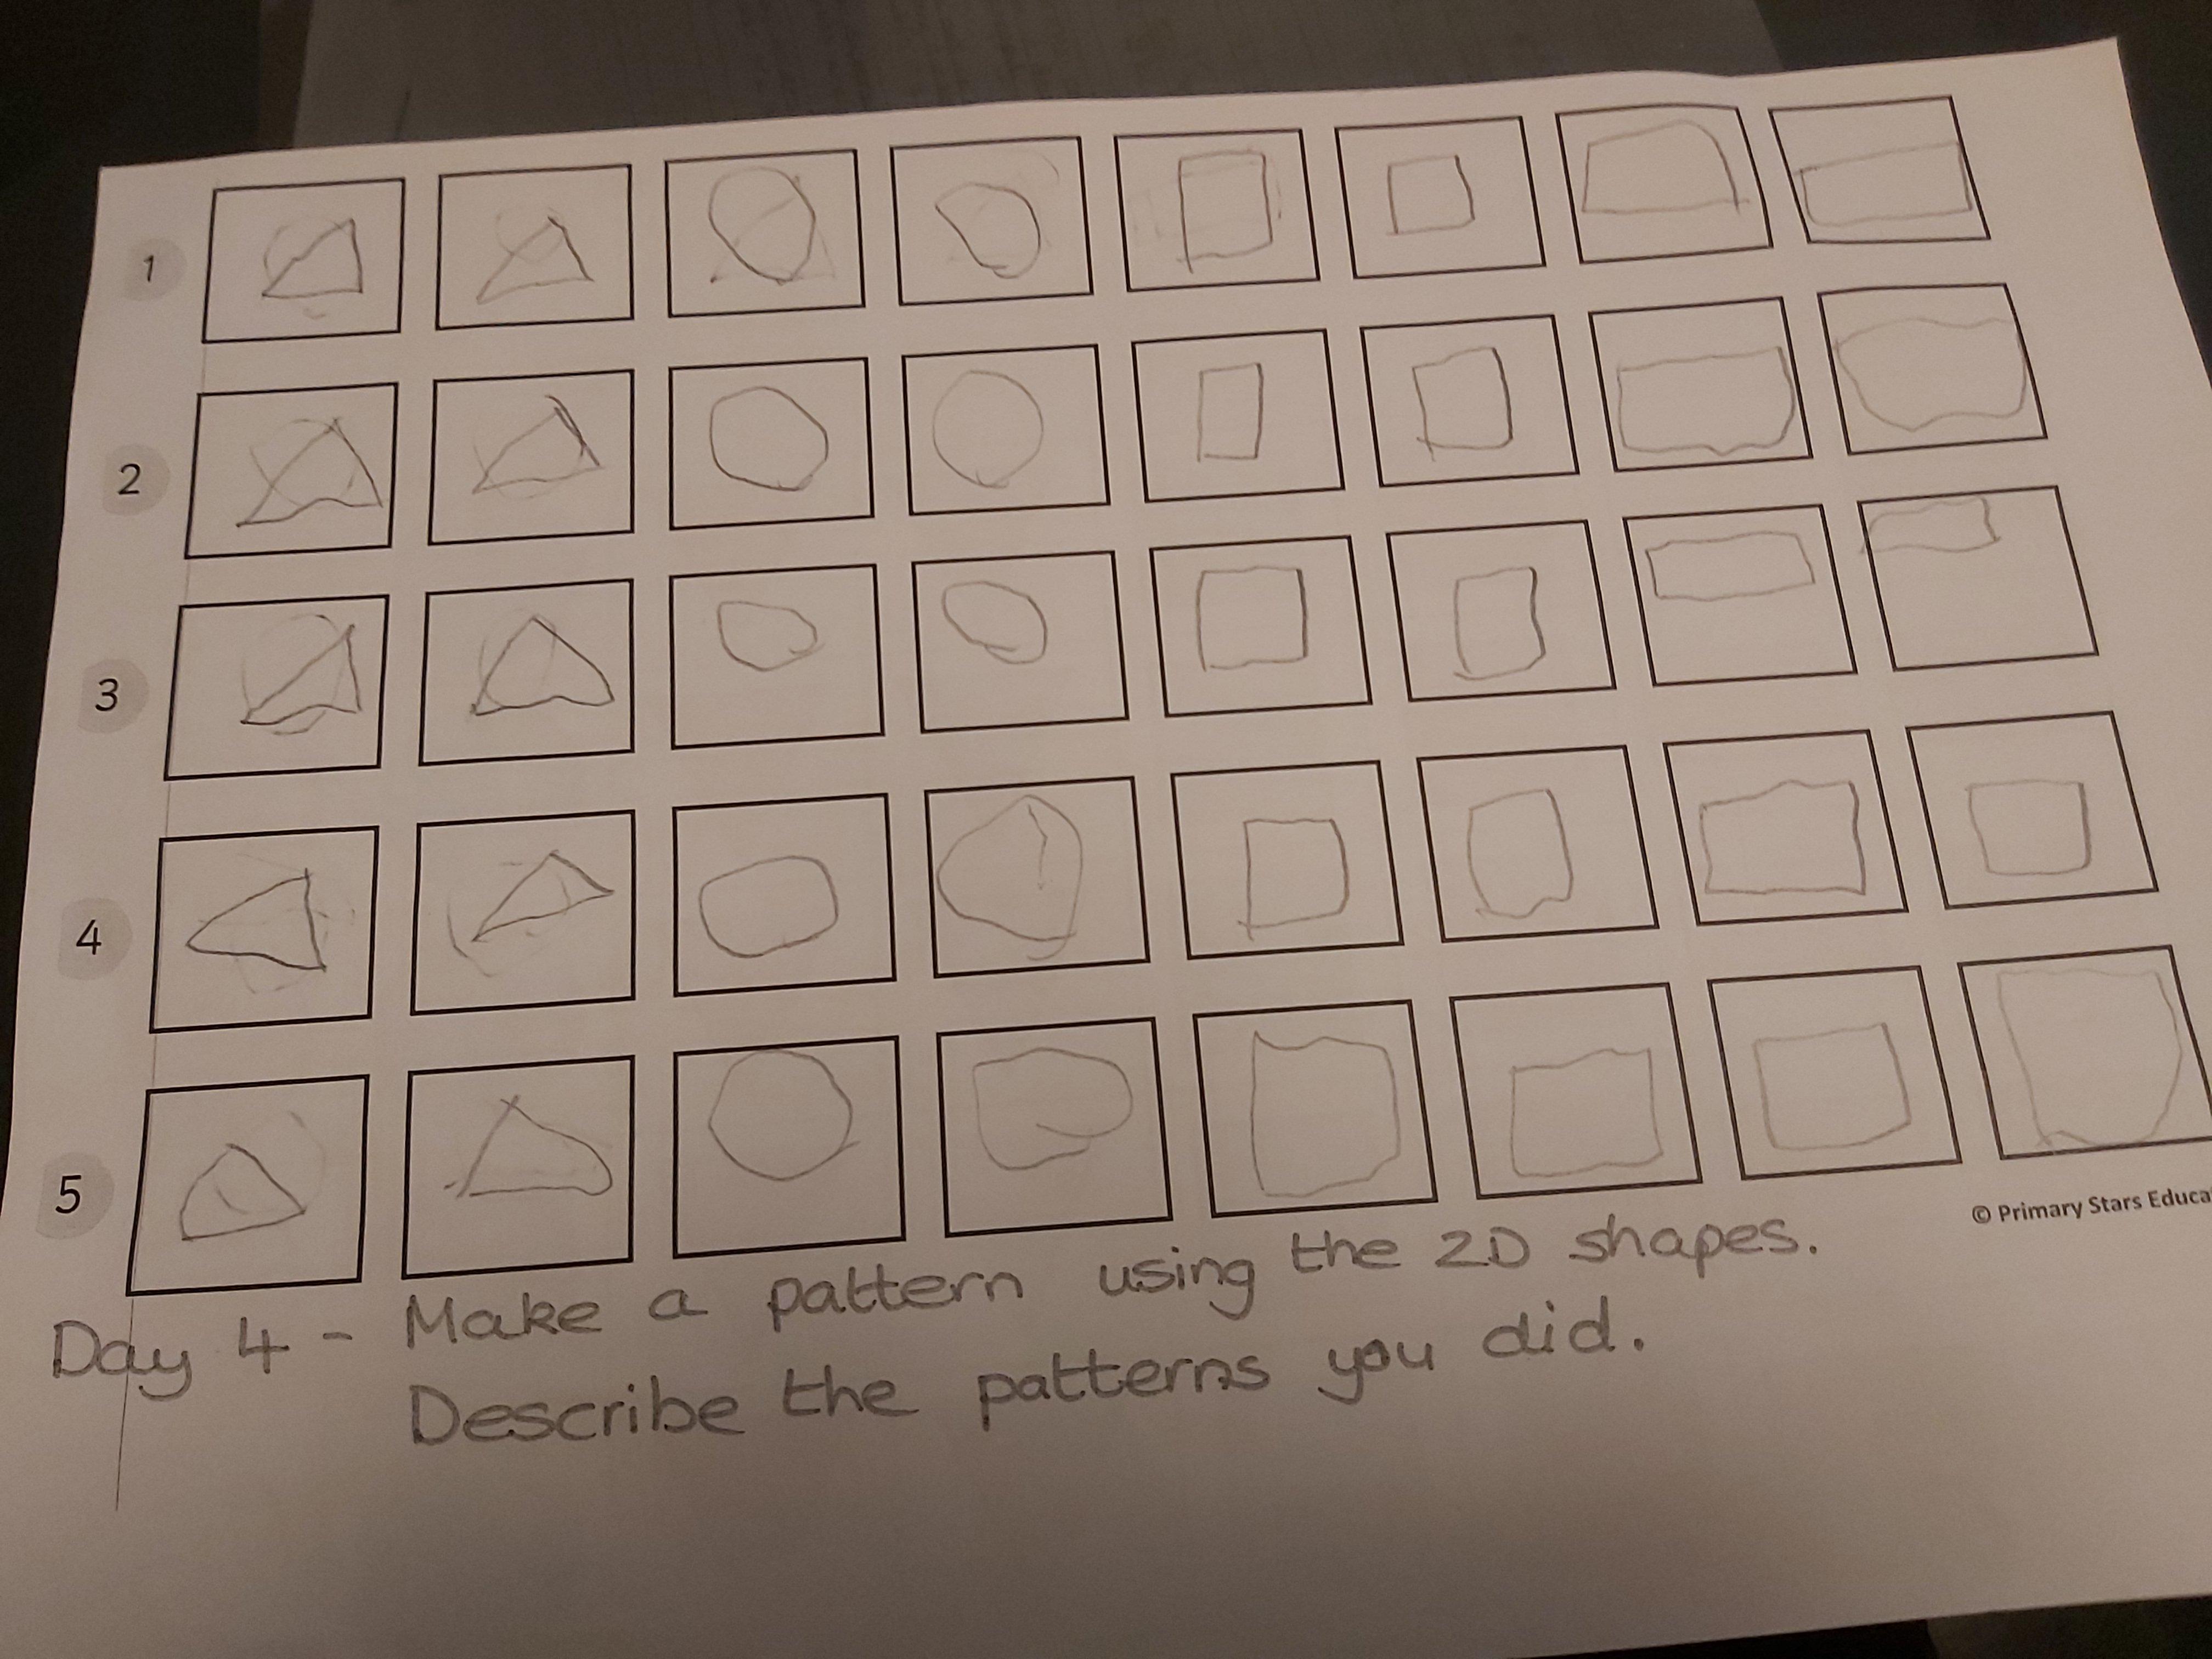 1
2
3
4
5
© Primary Stars Educa
Day 4 - Make a pattern using the 2D shapes.
Describe the patterns you did.